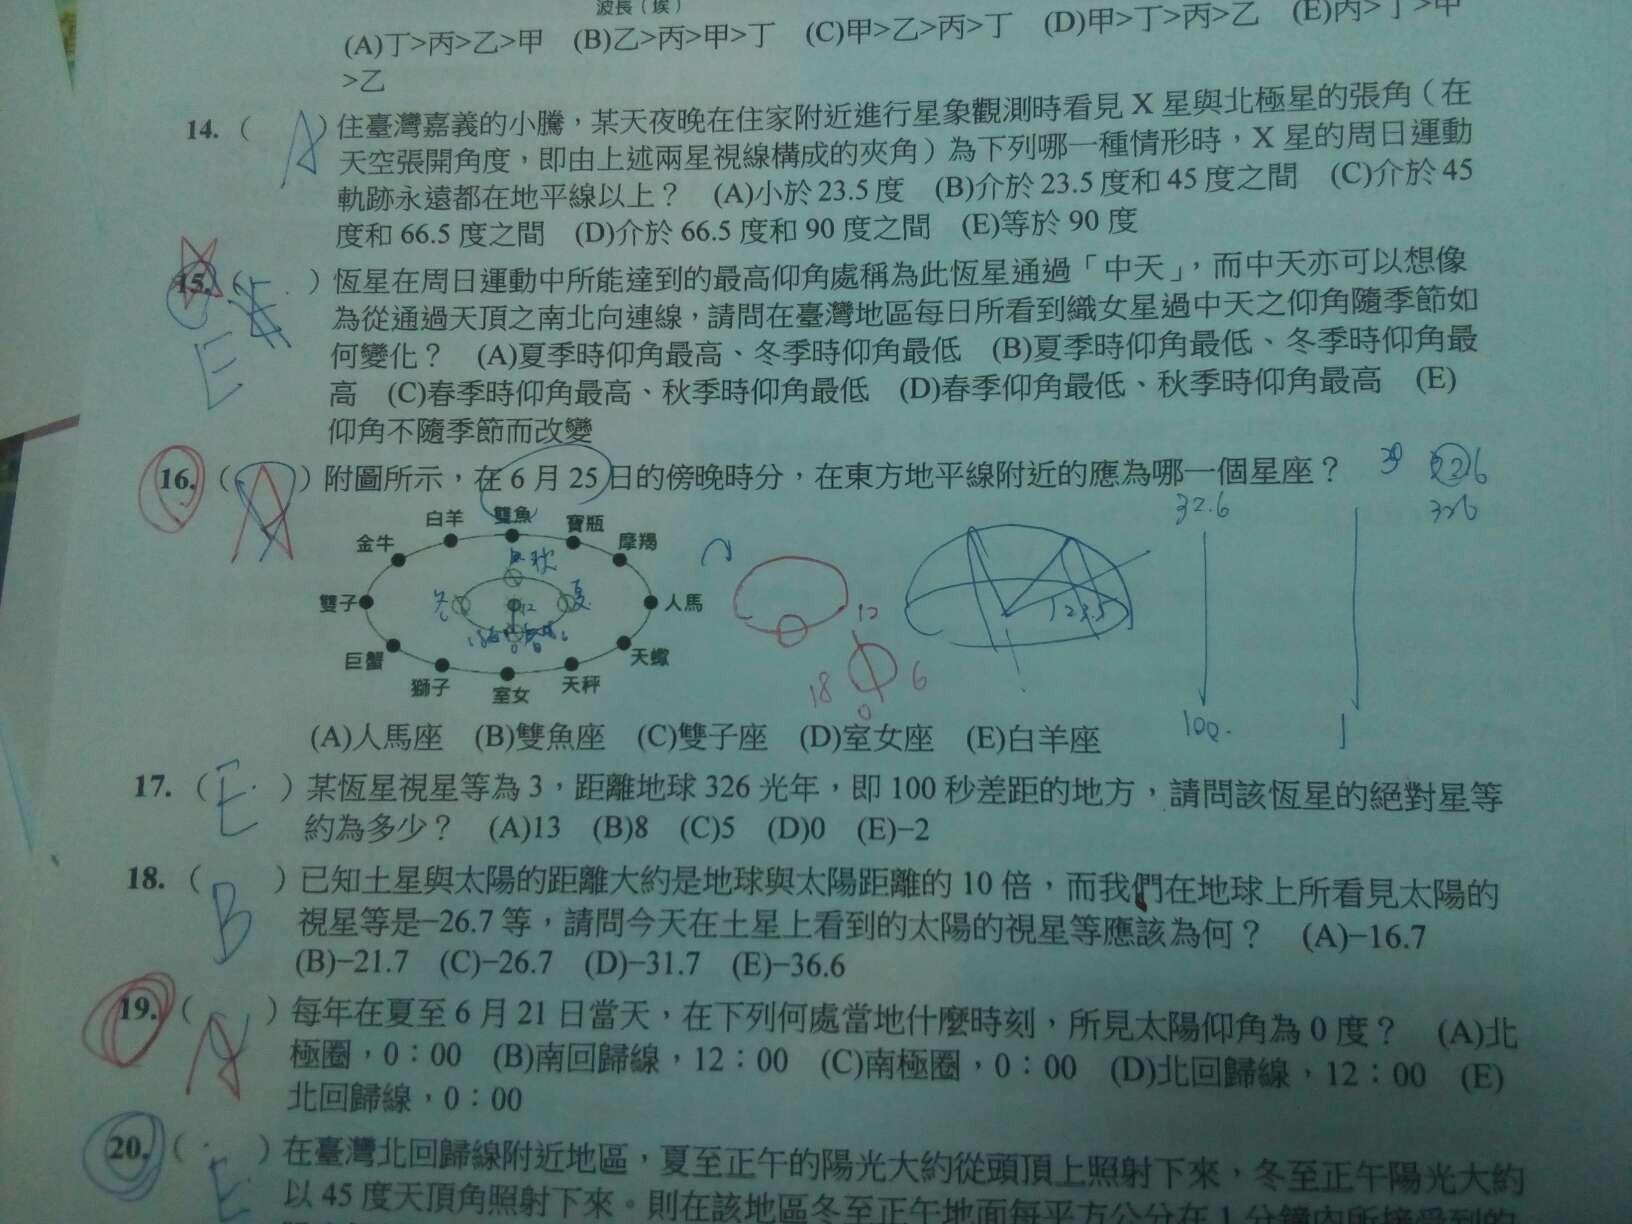 波長（埃）
(A)丁>丙>乙>甲 (B)乙>丙>甲>丁 (C)甲>乙>丙>丁 (D)甲>丁>丙>乙 (E)丙>丁>甲
>乙
14. ( A )住臺灣嘉義的小騰，某天夜晚在住家附近進行星象觀測時看見 X 星與北極星的張角（在
天空張開角度，即由上述兩星視線構成的夾角）為下列哪一種情形時，X 星的周日運動
軌跡永遠都在地平線以上？ (A)小於 23.5 度 (B)介於 23.5 度和 45 度之間 (C)介於 45
度和 66.5 度之間 (D)介於 66.5 度和 90 度之間 (E)等於 90 度
15. ( )恆星在周日運動中所能達到的最高仰角處稱為此恆星通過「中天」，而中天亦可以想像
E
為從通過天頂之南北向連線，請問在臺灣地區每日所看到織女星過中天之仰角隨季節如
何變化？ (A)夏季時仰角最高、冬季時仰角最低 (B)夏季時仰角最低、冬季時仰角最
高 (C)春季時仰角最高、秋季時仰角最低 (D)春季仰角最低、秋季時仰角最高 (E)
仰角不隨季節而改變
16. ( A )附圖所示，在 6 月 25 日的傍晚時分，在東方地平線附近的應為哪一個星座？
32.6
326
100
1
白羊 雙魚 寶瓶
金牛 摩羯
秋
雙子 冬 12 夏 人馬
巨蟹 天蠍
獅子 室女 天秤
12
18 6
0
123.5
(A)人馬座 (B)雙魚座 (C)雙子座 (D)室女座 (E)白羊座
17. ( E )某恆星視星等為 3，距離地球 326 光年，即 100 秒差距的地方，請問該恆星的絕對星等
約為多少？ (A)13 (B)8 (C)5 (D)0 (E)−2
18. ( B )已知土星與太陽的距離大約是地球與太陽距離的 10 倍，而我們在地球上所看見太陽的
視星等是−26.7 等，請問今天在土星上看到的太陽的視星等應該為何？ (A)−16.7
(B)−21.7 (C)−26.7 (D)−31.7 (E)−36.6
19. ( A )每年在夏至 6 月 21 日當天，在下列何處當地什麼時刻，所見太陽仰角為 0 度？ (A)北
極圈，0：00 (B)南回歸線，12：00 (C)南極圈，0：00 (D)北回歸線，12：00 (E)
北回歸線，0：00
20. ( E )在臺灣北回歸線附近地區，夏至正午的陽光大約從頭頂上照射下來，冬至正午陽光大約
以 45 度天頂角照射下來。則在該地區冬至正午地面每平方公分在 1 分鐘內所接受到的